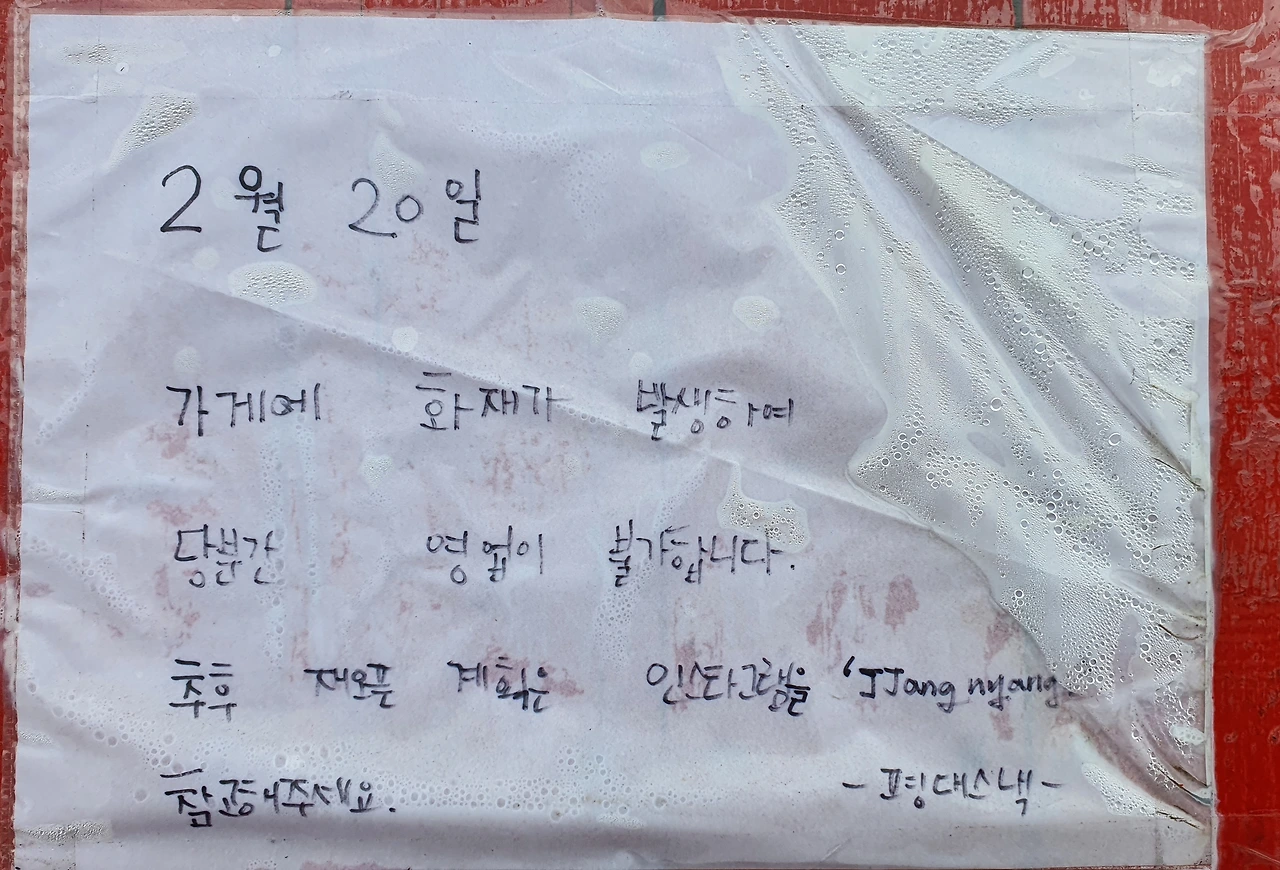 2월 20일
가게에 화재가 발생하여
당분간 영업이 불가합니다.
추후 재오픈 계획은 인스타그램을 'JJang nyang_
참고해주세요. -평대스낵-